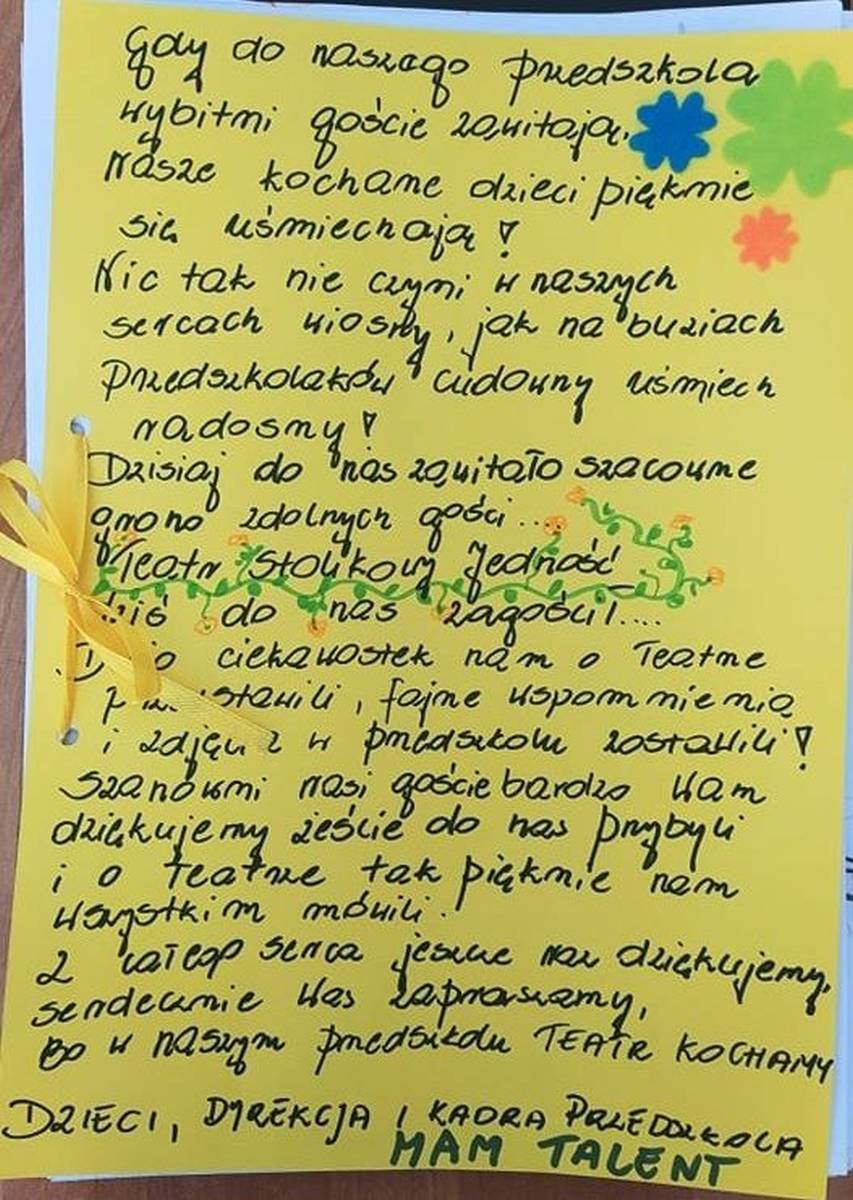 Gdy do naszego przedszkola
wybitni goście zawitają,
Nasze kochane dzieci pięknie
się uśmiechają!
Nic tak nie czyni w naszych
sercach wiosny, jak na buziach
Przedszkolaków cudowny uśmiech
radosny!
Dzisiaj do nas zawitało szacowne
grono zdolnych gości...
Teatr Stolikowy Jedność
dziś do nas zagościł....
ciekawostek nam o Teatrze
, fajne wspomnienia
i zdjęcia w przedszkolu zostawili!
Szanowni Nasi goście bardzo Wam
dziękujemy żeście do nas przybyli
i o teatrze tak pięknie nam
wszystkim mówili.
Z całego serca jeszcze raz dziękujemy,
serdecznie Was zapraszamy,
Bo w naszym przedszkolu TEATR KOCHAMY
DZIECI, DYREKCJA I KADRA PRZEDSZKOLA
MAM TALENT